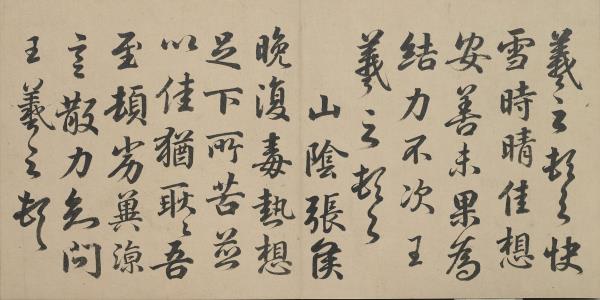 羲之頓首快
雪時晴佳想
安善未果為
結力不次王
羲之頓首
山陰張侯
晚復毒熱想
足下所苦並
以佳猶耿〻吾
至頓劣冀涼
言散力知問
王羲之頓首